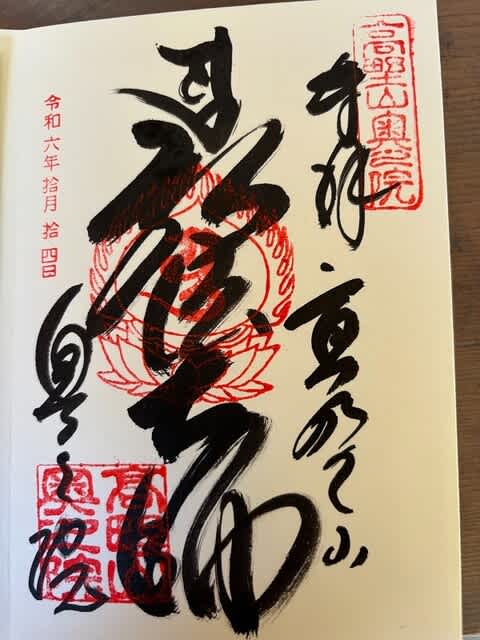 高野山奥之院
奉拝
高野山
弘法大師
令和六年拾月拾四日
奥之院
高野山
奥之院